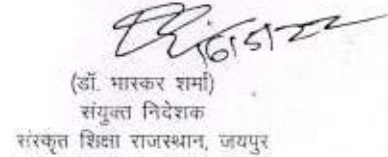 (डॉ. भास्कर शर्मा)
संयुक्त निदेशक
संस्कृत शिक्षा राजस्थान, जयपुर